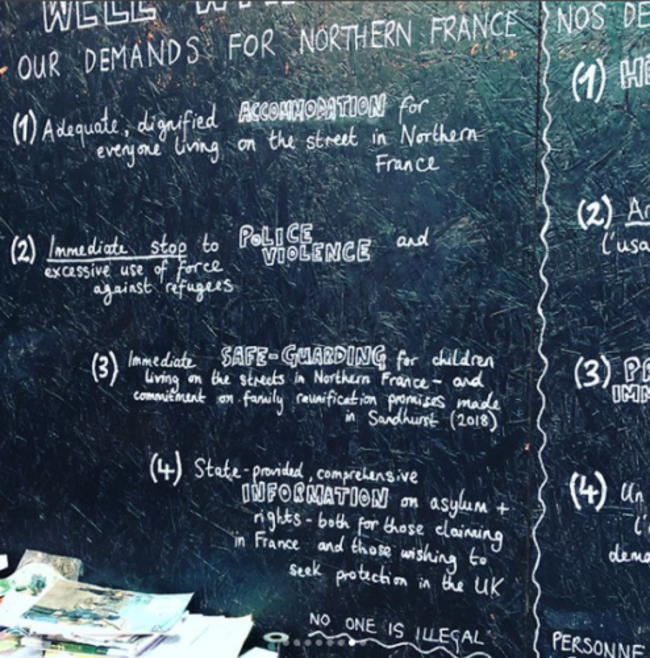 WELL
OUR DEMANDS FOR NORTHERN FRANCE
(1) Adequate, dignified ACCOMMODATION for
everyone living on the street in Northern
France
(2) Immediate stop to POLICE VIOLENCE and
excessive use of force
against refugees
(3) Immediate SAFE-GUARDING for children
living on the streets in Northern France - and
commitment on family reunification promises made
in Sandhurst (2018)
(4) State-provided, comprehensive
INFORMATION on asylum +
rights - both for those claiming
in France and those wishing to
seek protection in the UK
NO ONE IS ILLEGAL
NOS DE
(1) HÉ
(2) Ar
l'usa
(3) PR
IMM
(4) Un
l'
dema
PERSONNE